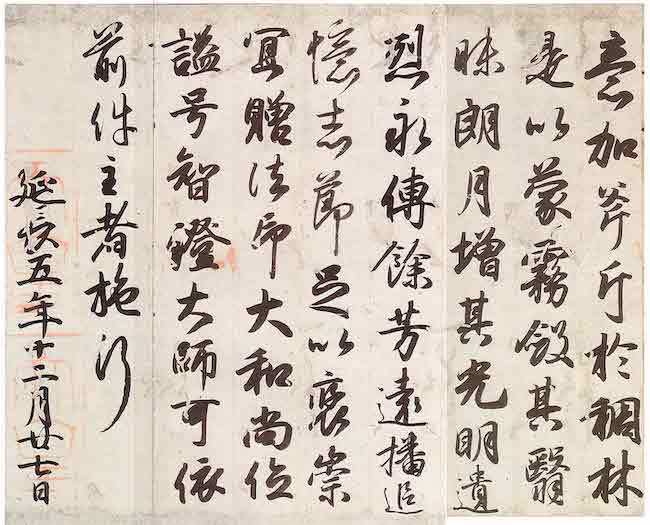 意加斧斤於稠林
是以蒙霧斂其翳
昧朗月增其光明遺
烈永傳餘芳遠播追
憶志節足以褒崇
冝贈法印大和尚位
諡号智證大師可依
前件主者施行
延長五年十二月廿七日